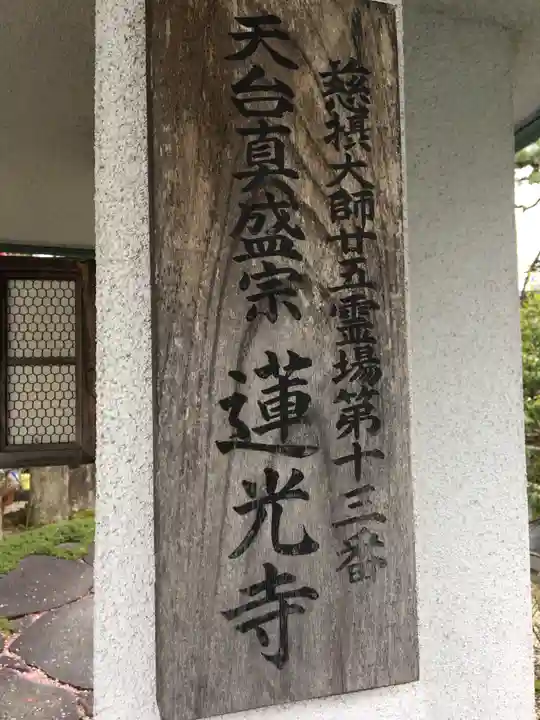 慈摂大師廿五霊場第十三番
天台真盛宗 蓮光寺